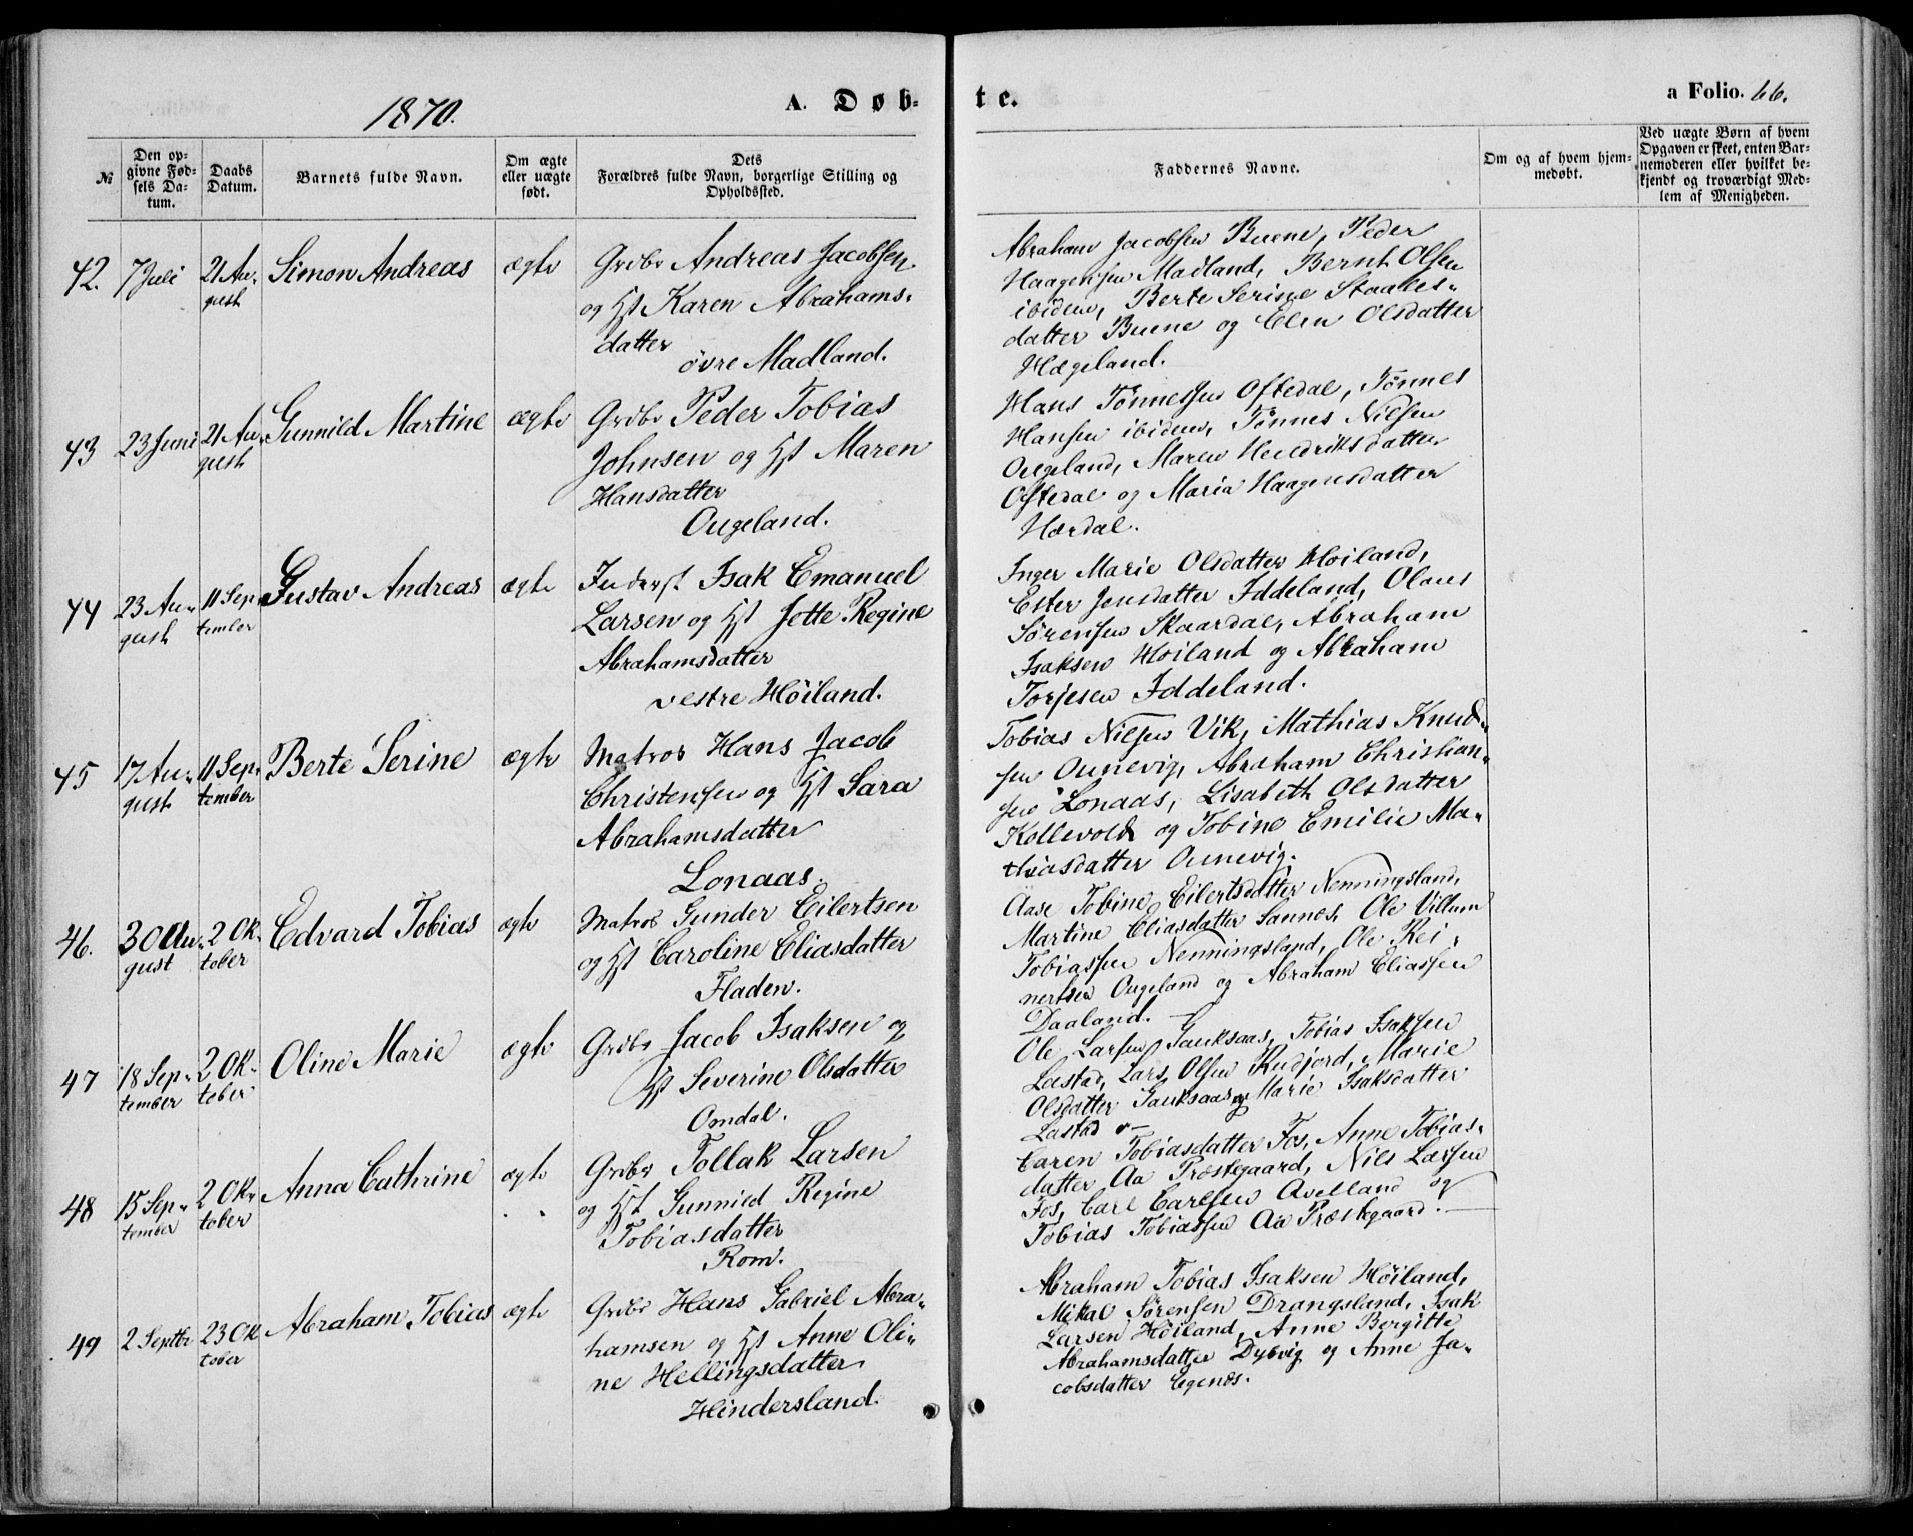 1870.
A. Døb-
te.
a Folio. 66.
№
Den op-
givne Fød-
sels Da-
tum.
Daabs
Datum.
Barnets fulde Navn.
Om ægte
eller uægte
født.
Dets
Forældres fulde Navn, borgerlige Stilling og
Opholdssted.
Faddernes Navne.
Om og af hvem hjem-
medøbt.
Ved uægte Børn af hvem
Opgaven er skeet, enten Bar-
nemoderen eller hvilket be-
kjendt og troværdigt Med-
lem af Menigheden.
42. 7 Juli 21 Au-
gust
Simon Andreas
ægte
Grdbr Andreas Jacobsen
og Hst Karen Abrahams-
datter
övre Madland.
Abraham Jacobsen Buene, Peder
Haagensen Madland, Bernt Olsen
ibidem, Berte Serine Staales-
datter Buene og Elen Olsdatter
Hægeland.
43 23 Juni 21 Au-
gust
Gunnild Martine
ægte
Grdbr Peder Tobias
Johnsen og Hst Maren
Hansdatter
Ougeland.
Hans Tönnessen Oftedal, Tönnes
Hansen ibidem, Tönnes Nilsen
Ougeland, Maren Hendriksdatter
Oftedal og Maria Haagensdatter
Hærdal.
44 23 Au-
gust
11 Sep-
tember
Gustav Andreas
ægte
Inderst Isak Emanuel
Larsen og Hst Jotte Regine
Abrahamsdatter
vestre Höiland.
Inger Marie Olsdatter Höiland,
Ester Jensdatter Iddeland, Olaus
Sörensen Skaardal, Abraham
Isaksen Höiland og Abraham
Torjesen Iddeland.
45 17 Au-
gust
11 Sep-
tember
Berte Serine
ægte
Matros Hans Jacob
Christensen og Hst Sara
Abrahamsdatter
Lonaas.
Tobias Nilsen Vik, Mathias Knud-
sen Ounevig, Abraham Christian-
sen Lonaas, Lisabeth Olsdatter
Kollevold og Tobine Emilie Ma-
thiasdatter Ounevig.
46. 30 Au-
gust
2 Ok-
tober
Edvard Tobias
ægte
Matros Gunder Eilertsen
og Hst Caroline Eliasdatter
Fladen.
Aase Tobine Eilertsdatter Nenningsland,
Martine Eliasdatter Sannes, Ole Villum
Tobiassen Nenningsland, Ole Rei-
nertsen Ougeland og Abraham Eliassen
Daaland.
47 18 Sep-
tember
2 Ok-
tober
Oline Marie
ægte
Grdbr Jacob Isaksen og
Hst Severine Olsdatter
Omdal.
Ole Larsen Gauksaas, Tobias Isaksen
Lastad, Lars Olsen Rudjord, Marie
Olsdatter Gauksaas og Marie Isaksdatter
Lastad
48 15 Sep-
tember
2 Ok-
tober
Anna Cathrine
ægte
Grdbr Tollak Larsen
og Hst Gunnild Regine
Tobiasdatter
Rom.
Caren Tobiasdatter Fos, Anne Tobias-
datter Aa Præstegaard, Nils Larsen
Fos, Carl Carlsen Avelland og
Tobias Tobiassen Aa Præstegaard.
49 2 Septbr 23 Ok
tober
Abraham Tobias
ægte
Grdbr Hans Gabriel Abra-
hamsen og Hst Anne Oli-
ne Hellingsdatter
Hindersland.
Abraham Tobias Isaksen Höiland,
Mikal Sörensen Drangsland, Isak
Larsen Höiland, Anne Bergitte
Abrahamsdatter Dybvig og Anne Ja-
cobsdatter Egenæs.